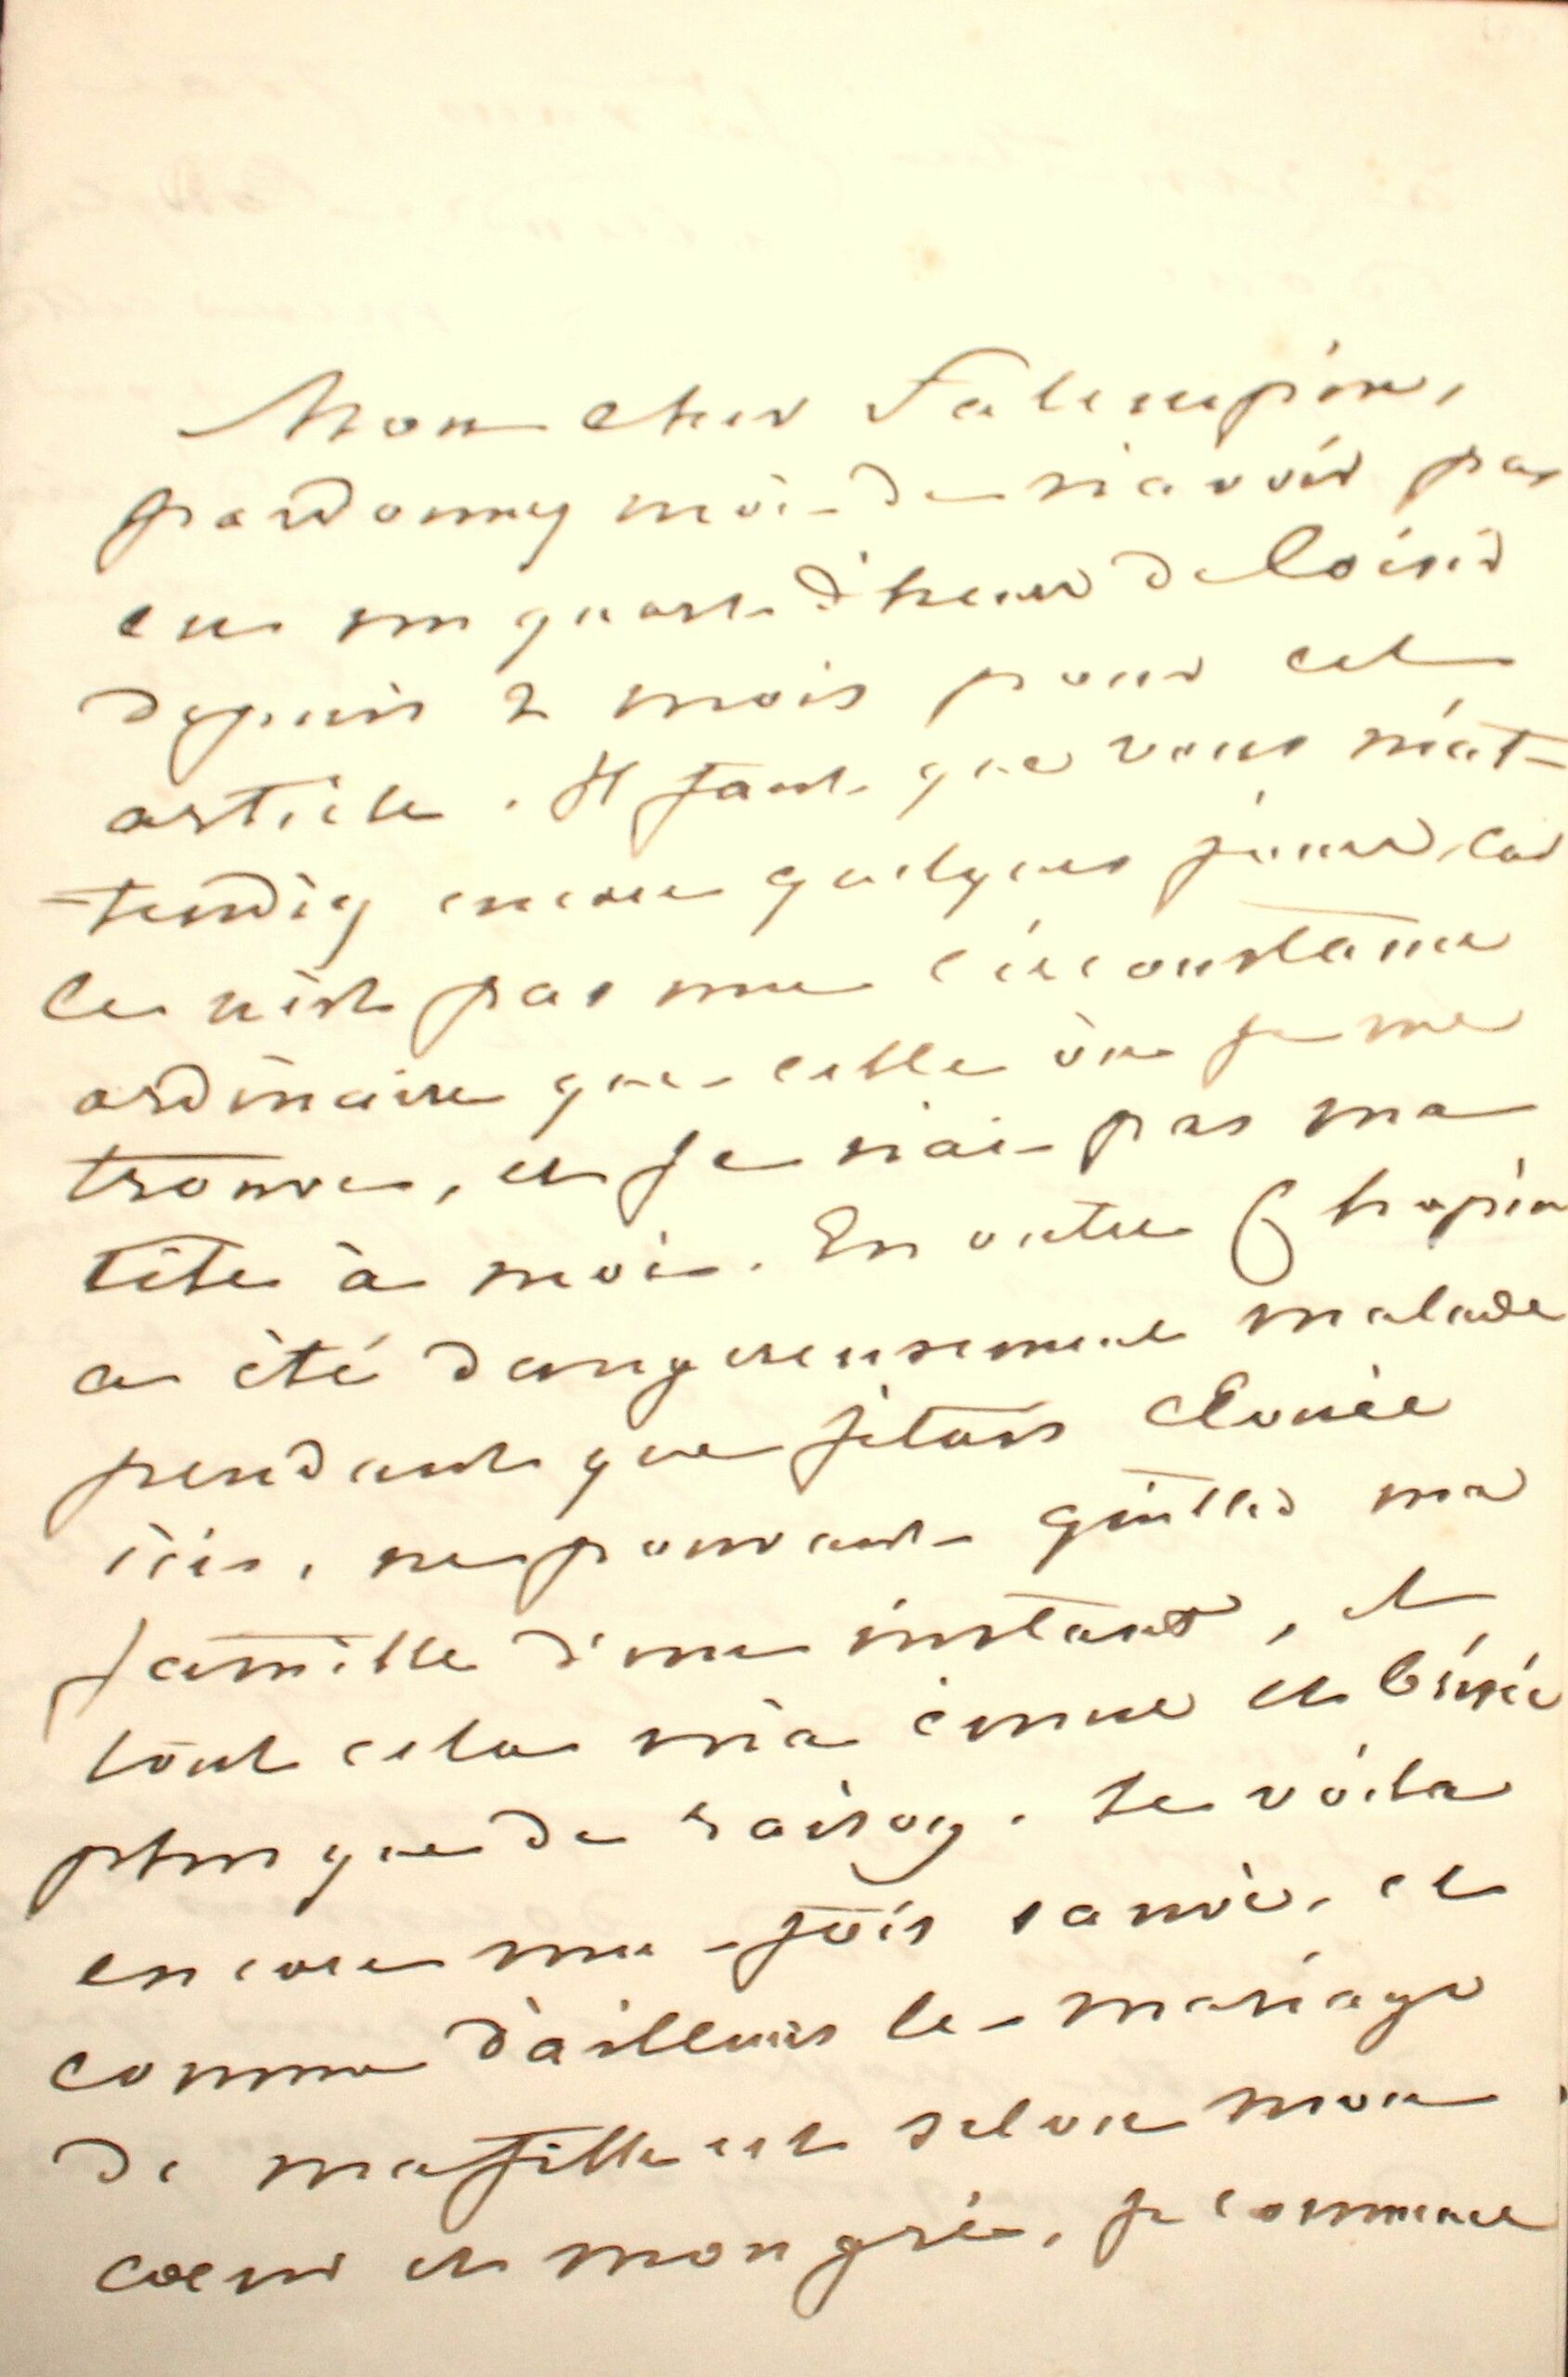 Mon cher Falempin,
pardonnez moi de n'avoir pas
eu un quart d'heure de loisir
depuis 2 mois pour cet
article. Il faut que vous m'at-
-tendiez encore quelques jours, car
ce n'est pas une circonstance
ordinaire que celle où je me
trouve, et je n'ai pas ma
tête à moi. En outre Chopin
a été dangereusement malade
pendant que j'étais clouée
ici, ne pouvant quitter ma
famille d'un instant, et
tout cela m'a émue et brisée
plus que de raison. Le voilà
encore une fois sauvé, et
comme d'ailleurs le mariage
de ma fille est selon mon
coeur et mon gré, je commence